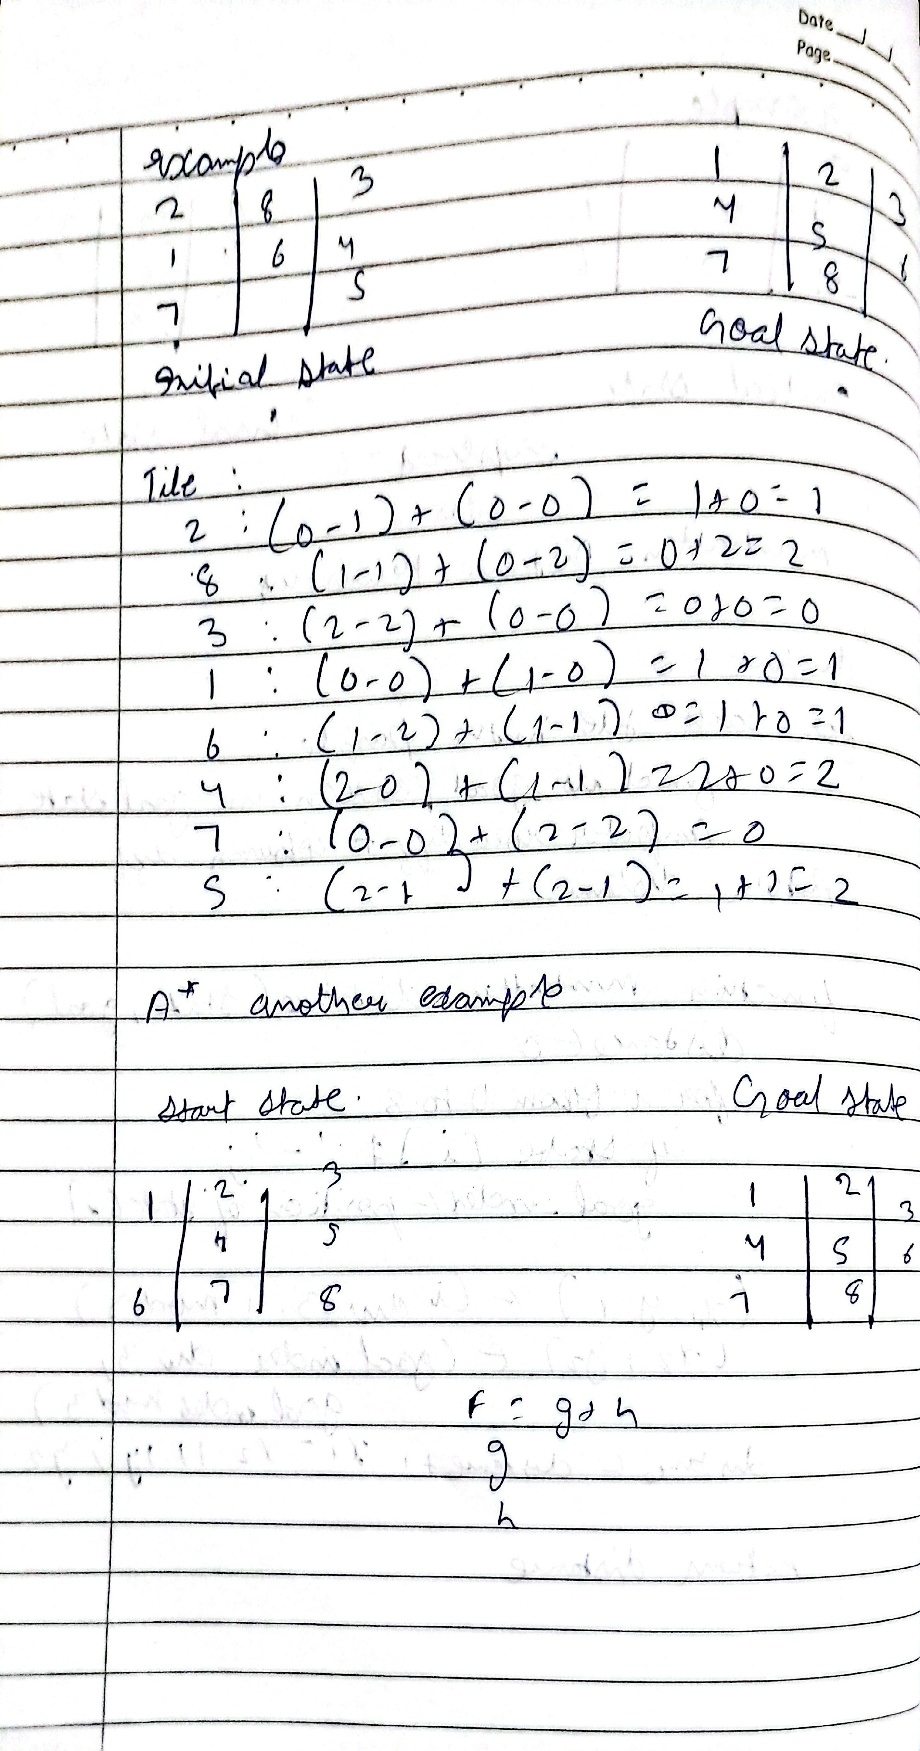 Date
Page
example
2 | 8 | 3    1 | 2 | 3
1 | 6 | 4    4 | 5 | 6
7 | | 5    7 | 8 |
Initial state    Goal state.
Tile :
2 : (0-1) + (0-0) = 1+0=1
8 : (1-1) + (0-2) = 0+2=2
3 : (2-2) + (0-0) = 0+0=0
1 : (0-0) + (1-0) = 1+0=1
6 : (1-2) + (1-1) = 1+0=1
4 : (2-0) + (1-1) = 2+0=2
7 : (0-0) + (2-2) = 0
5 : (2-1) + (2-1) = 1+1= 2
A* another example
Start state.    Goal state
1 | 2 | 3    1 | 2 | 3
| 4 | 5    4 | 5 | 6
6 | 7 | 8    7 | 8 |
F = g+h
g
h